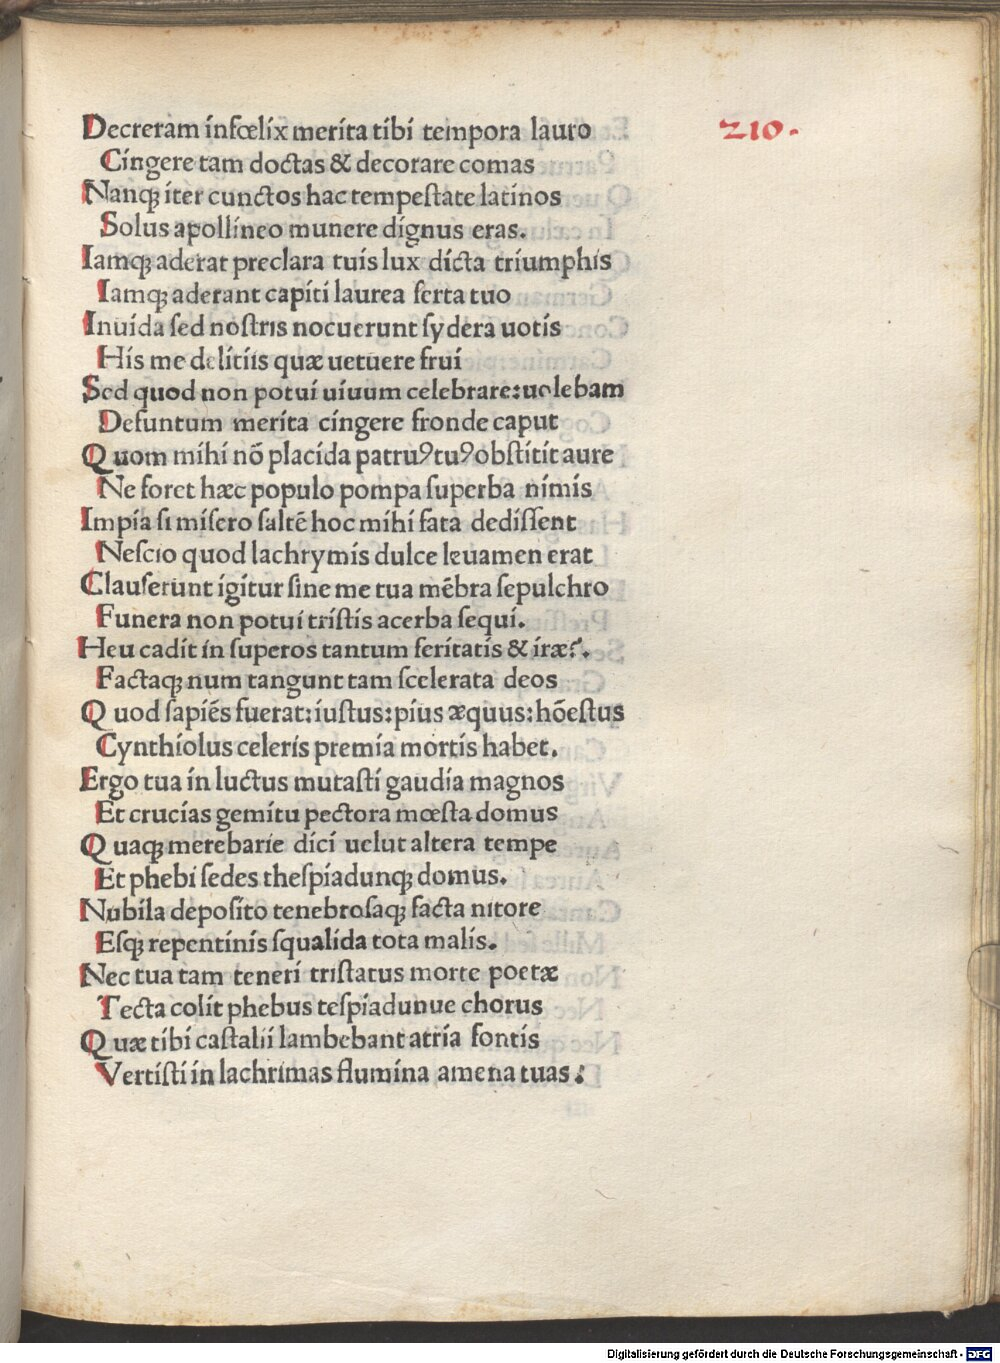 210.
Decreram infœlix merita tibi tempora lauro
Cingere tam doctas & decorare comas
Nanqꝫ iter cunctos hac tempeſtate latinos
Solus apollineo munere dignus eras.
Iamqꝫ aderat preclara tuis lux dicta triumphis
Iamqꝫ aderant capiti laurea ſerta tuo
Inuida ſed noſtris nocuerunt ſydera uotis
His me delitiis quæ uetuere frui
Sed quod non potui uiuum celebrare:uolebam
Defuntum merita cingere fronde caput
Quom mihi nō placida patruꝰ tuꝰ obſtitit aure
Ne foret hæc populo pompa ſuperba nimis
Impia ſi miſero ſaltē hoc mihi fata dediſſent
Neſcio quod lachrymis dulce leuamen erat
Clauſerunt igitur ſine me tua mēbra ſepulchro
Funera non potui triſtis acerba ſequi.
Heu cadit in ſuperos tantum feritatis & iræ?.
Factaqꝫ num tangunt tam ſcelerata deos
Quod ſapiēs fuerat:iuſtus:pius æquus:hōeſtus
Cynthiolus celeris premia mortis habet.
Ergo tua in luctus mutaſti gaudia magnos
Et crucias gemitu pectora mœſta domus
Quaqꝫ merebarie dici uelut altera tempe
Et phebi ſedes theſpiadunqꝫ domus.
Nubila depoſito tenebroſaqꝫ facta nitore
Eſqꝫ repentinis ſqualida tota malis.
Nec tua tam teneri triſtatus morte poetæ
Tecta colit phebus teſpiadunue chorus
Quæ tibi caſtalii lambebant atria fontis
Vertiſti in lachrimas flumina amena tuas?
Digitalisierung gefördert durch die Deutsche Forschungsgemeinschaft - DFG